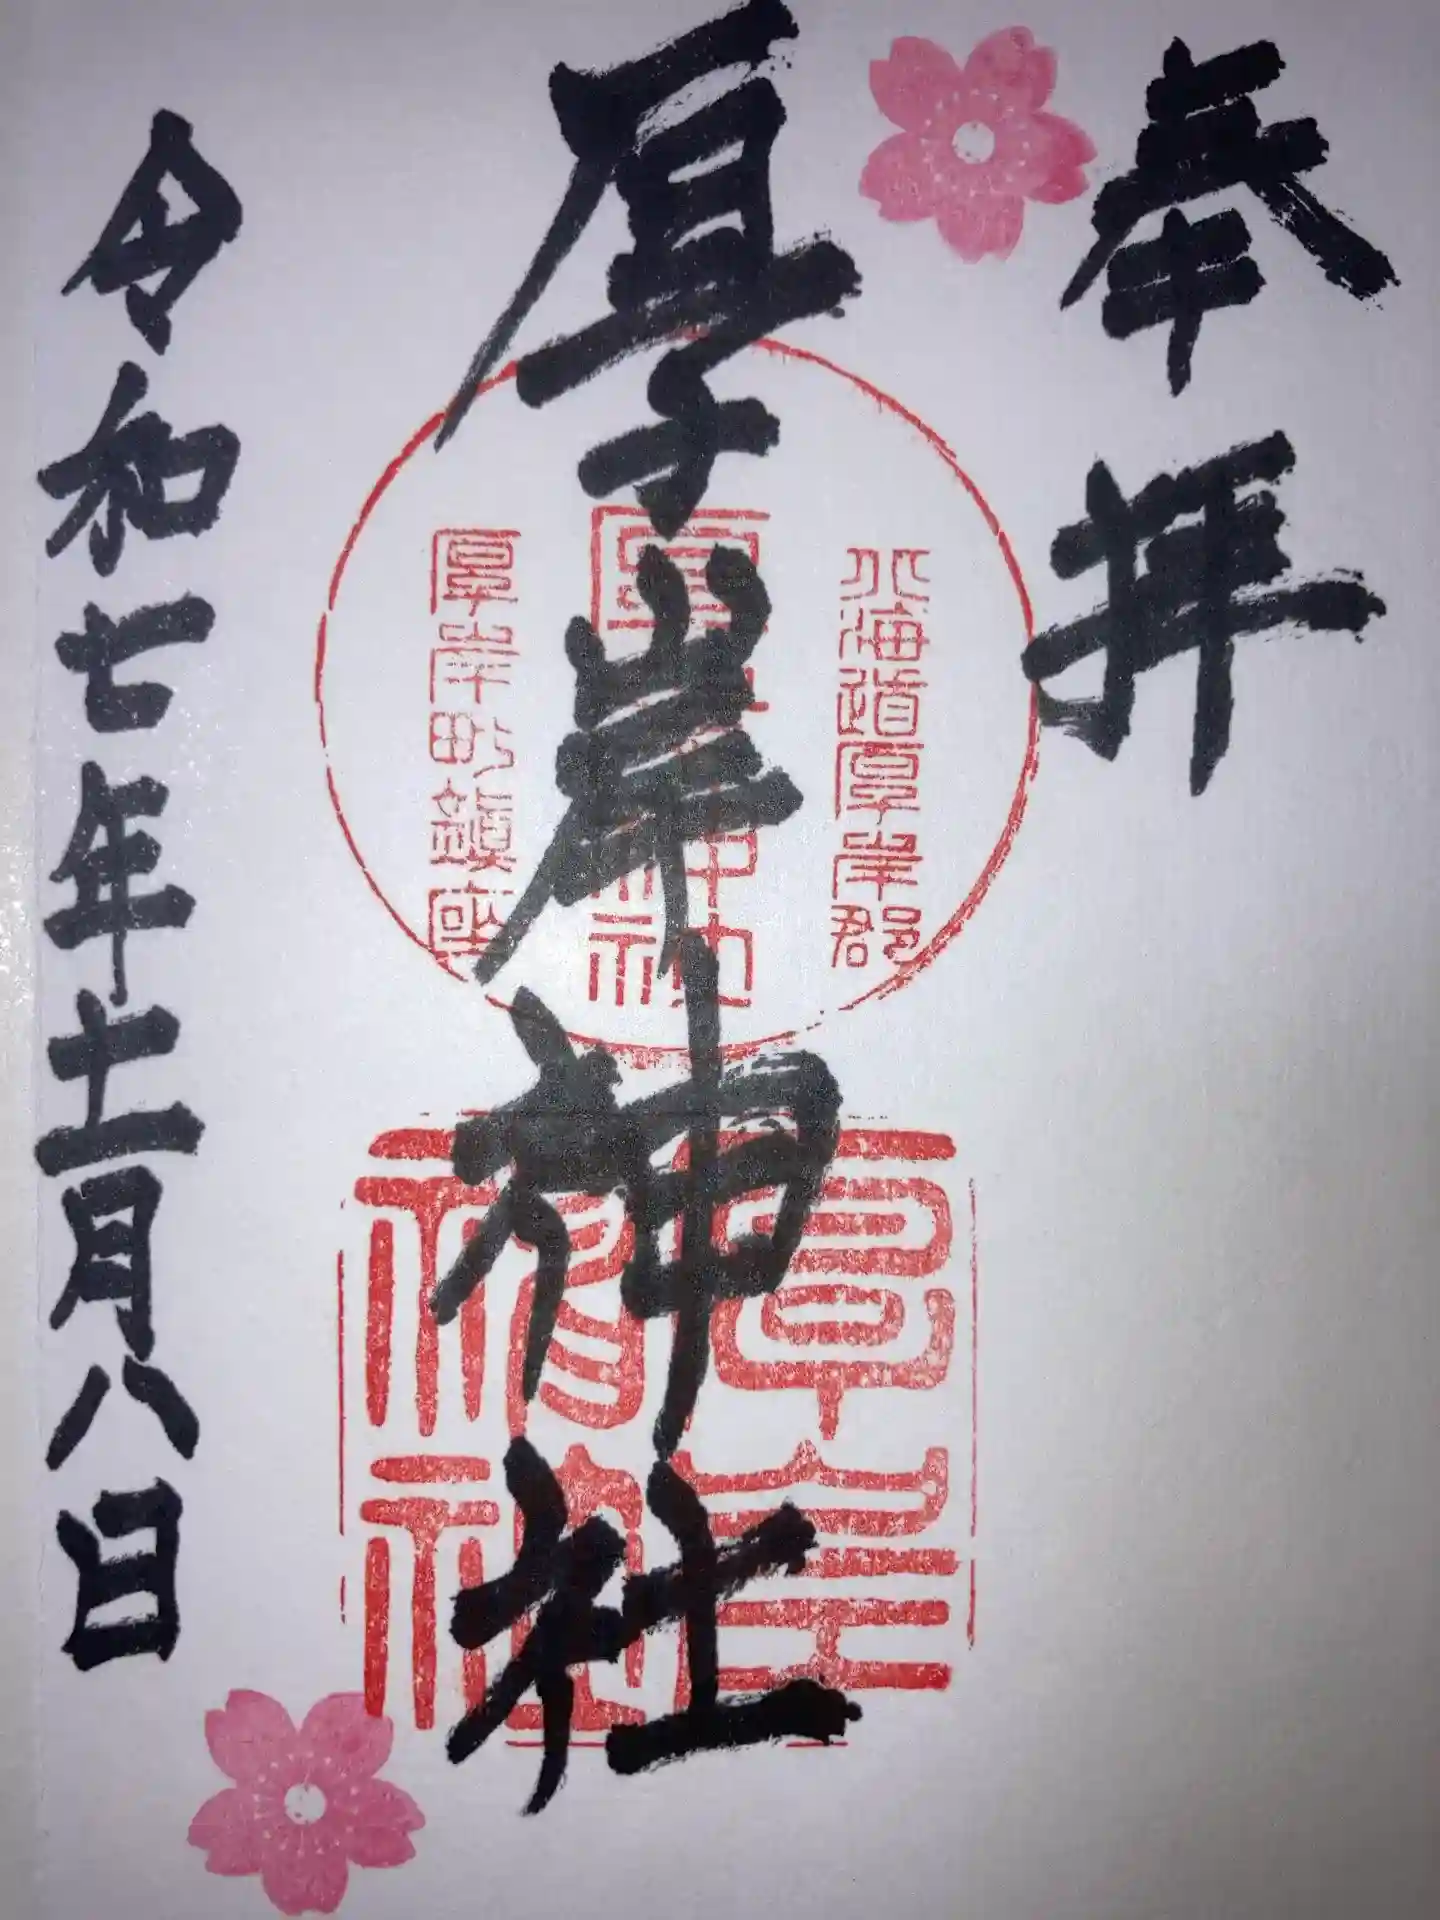 奉拝
厚岸神社
北海道厚岸郡
厚岸神社
厚岸町鎮座
厚岸
神社
令和七年十一月八日